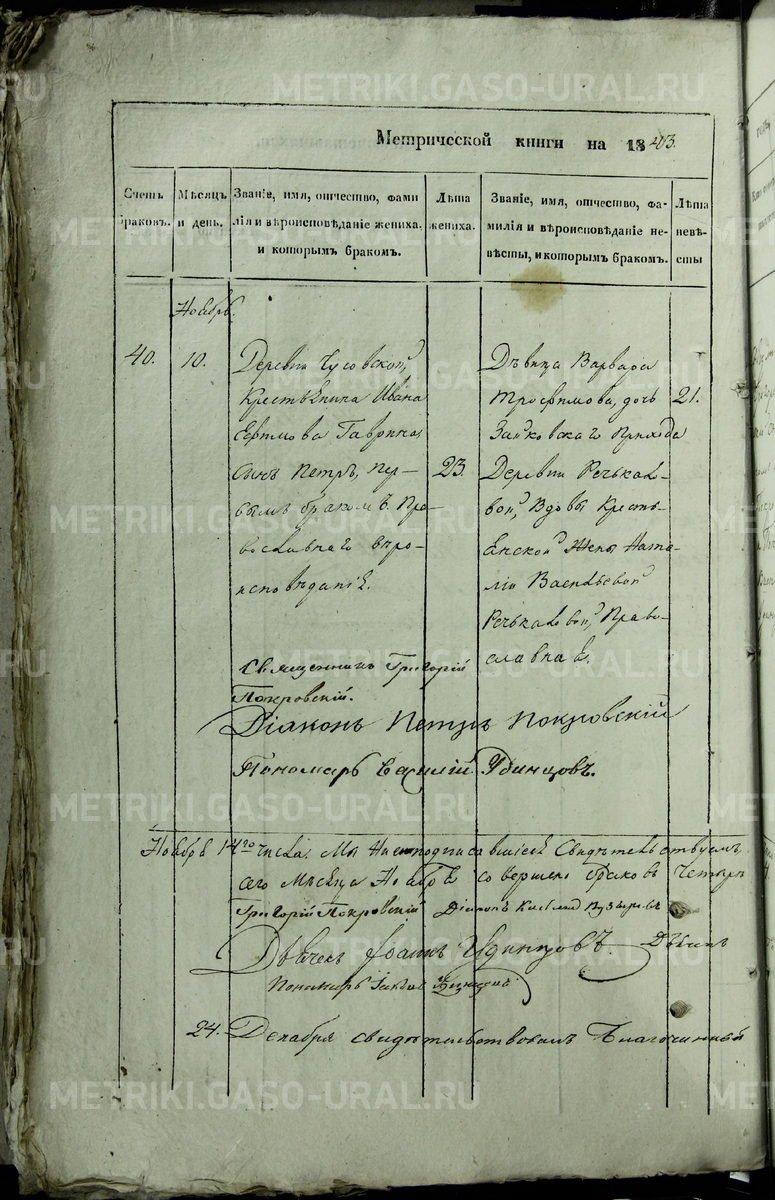 METRIKI.GASO-URAL.RU
Метрической книги на 1843.
Счетъ браковъ.
Мѣсяцъ и день.
Званіе, имя, отчество, фами
лія и вѣроисповѣданіе жениха,
и которымъ бракомъ.
Лѣта
жениха.
Званіе, имя, отчество, фа-
милія и вѣроисповѣданіе не-
вѣсты, и которымъ бракомъ.
Лѣта
невѣ-
сты
Ноябрь.
40.
10.
Деревни Чусовской,
Крестьянина Ивана
Ефимова Гаврина,
сынъ Петръ, пер-
вымъ бракомъ. Пра-
вославнаго вѣро-
исповѣданія.
23.
Дѣвица Варвара
Трофимова, дочь
Зайковскаго Прихода
Деревни Речькало-
вой, Вдовы Кресть-
янской Жены Ната-
ліи Васильевой
Речькаловой, Право-
славная.
21.
Священникъ Григорій
Покровскій.
Діаконъ Петръ Покровскій
Пономарь Василій Удинцовъ.
Ноября 14го числа. Мы нижеподписавшіеся Свидѣтельствуемъ,
сего Мѣсяца Ноября совершено браковъ Четыре
Григорій Покровскій Діаконъ
Дьячекъ Іоаннъ Удинцовъ.
Пономарь
24. Декабря свидѣтельствовалъ Благочинный